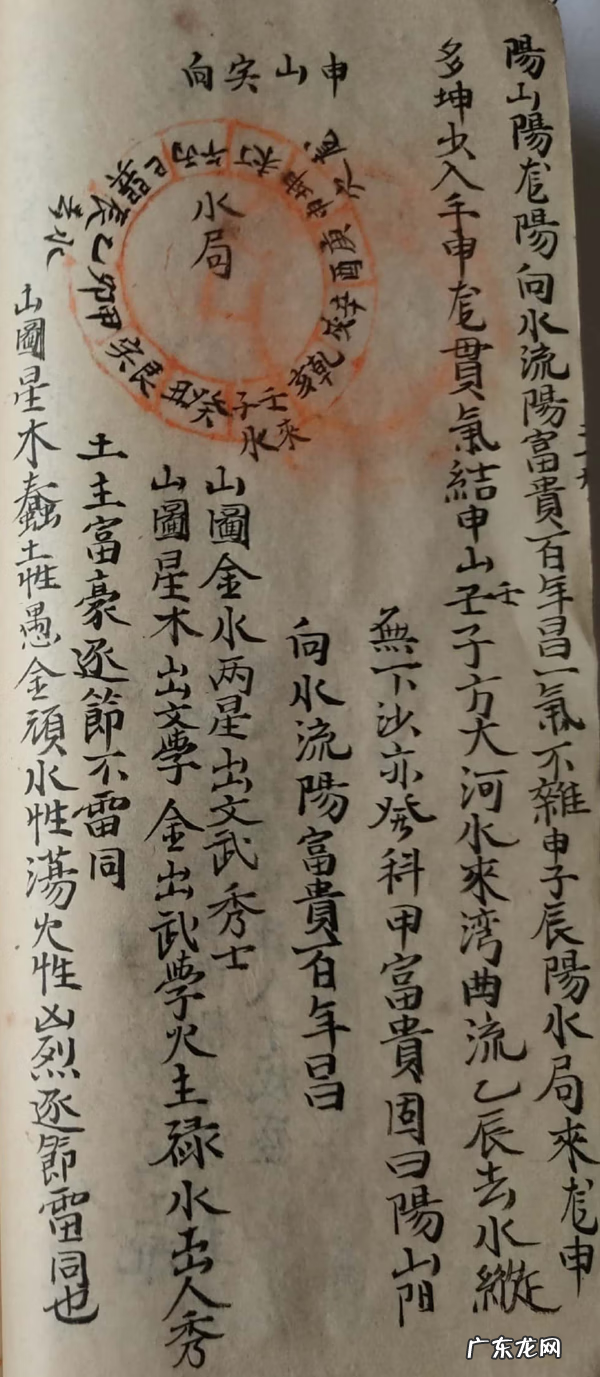 陽山陽龙陽向水流陽富貴百年昌一氣不雜申子辰陽水局來龙申
多坤虫入手申龙貫氣結申山壬子方大河水來湾曲流乙辰去水縱
壬
無下沙亦發科甲富貴固曰陽山阳
向水流陽富貴百年昌
申山寅向
水局
丙午
丁未
坤申
庚酉
辛戌
乾亥
壬子
癸丑
艮寅
甲卯
乙辰
巽巳
來水
去水
山圖金水两星出文武秀士
山圖星木出文學金出武學火主禄水出人秀
土主富豪逐節不雷同
山圖星木蠢土性愚金頑水性蕩火性凶烈逐節雷同也
广东龙网